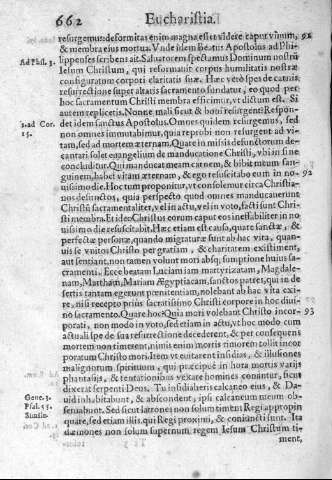 662 Eucharistia.
resurgemus: deformitas enim magna esset videre caput vivum, 91
& membra eius mortua. Vnde idem beatus Apostolus ad Phi-
Ad Phil. 3. lippenses scribens ait. Saluatorem spectamus Dominum nostrũ
Iesum Christum, qui reformauit corpus humilitatis nostræ
configuratum corpori claritatis suæ. Hæc verò spes de carnis
resurrectione super altaris sacramento fundatur, eo quod per
hoc sacramentum Christi membra efficimur, vt dictum est. Si
autem
1.ad Cor. det idem sanctus Apostolus. Omnes quidem resurgemus, sed
15. non omnes immutabimur, quia reprobi non resurgent ad vi-
tam, sed ad mortem æternam. Quare in missis defunctorum de-
cantari solet euangelium de manducatione Christi, vbi in fine
concluditur. Qui manducat meam carnem, & bibit meum san-
guinem, habet vitam æternam, & ego resuscitabo eum in no- 92
uissimo die. Hoc tum proponitur, vt consolemur circa Christia-
nos defunctos, quia perspecto quod omnes manducauerunt
Christũ sacramentaliter, vel ei actu, vel in voto, facti sunt Chri-
sti membra. Et ideo Christus eorum caput eos ineffabiliter in no-
uissimo die resuscitabit. Hæc etiam est causa, quare sanctæ, &
perfectæ personæ, quando migraturæ sunt ab hac vita, quam-
uis se vnitos Christo per gratiam, & charitatem existiment,
aut sentiant, non tamen volunt mori absq; sumptione huius sa-
cramenti. Ecce beatam Luciam iam martyrizatam, Magdale-
nam, Martham, Mariam Ægyptiacam, sanctos patres, qui in de-
sertis tantam egerunt pœnitentiam, nolebant ab hac vita exi-
re, nisi recepto prius sacratissimo Christi corpore in hoc diui-
no sacramento. Quare hoc? Quia mori volebant Christo incor- 93
porati, non modo in voto, sed etiam in actu, vt hoc modo cum
actuali spe de sua resurrectione decederent, & per consequens
mortem non timerent, nimis enim mortis timorem tollit incor-
poratum Christo mori. Item vt euitarent insidias, & illusiones
malignorum spirituum, qui præcipuè in hora mortis varijs
phantasijs, & tentationibus vexare homines conantur, sicut
Gene. 3. dixerat serpenti Deus. Tu insidiaberis calcaneo eius, & Da-
Psal. 55. uid inhabitabunt, & abscondent, ipsi calcaneum meum ob-
Simile. seruabunt. Sed sicut latrones non solum timent Regi appropin
quare, sed etiam illis, qui Regi proximi, & coniuncti sunt. Ita
dæmones non solum supernum regem Iesum Christum ti-
ment,